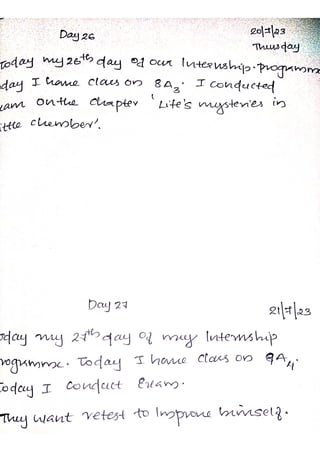 Day 26 20/7/23
Thursday
Today my 26th day of our Internship programme
day I have class on 8A3. I conducted
exam on the chapter 'Life's mysteries in
little chember'.
Day 27 21/7/23
Today my 27th day of my Internship
Programme. Today I have class on 9A4.
Today I conduct Exam.
They want retest to Improve himself.